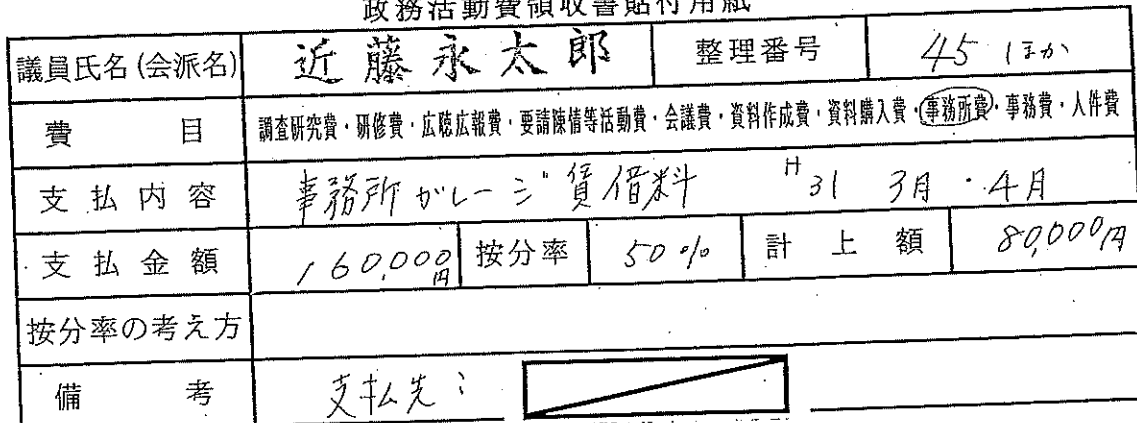 政務活動費領収書貼付用紙
議員氏名(会派名) 近藤永太郎 整理番号 45 ほか
費目 調査研究費・研修費・広聴広報費・要請陳情等活動費・会議費・資料作成費・資料購入費・事務所費・事務費・人件費
支払内容 事務所ガレージ賃借料 H31 3月・4月
支払金額 160,000円 按分率 50% 計上額 80,000円
按分率の考え方
備考 支払先: